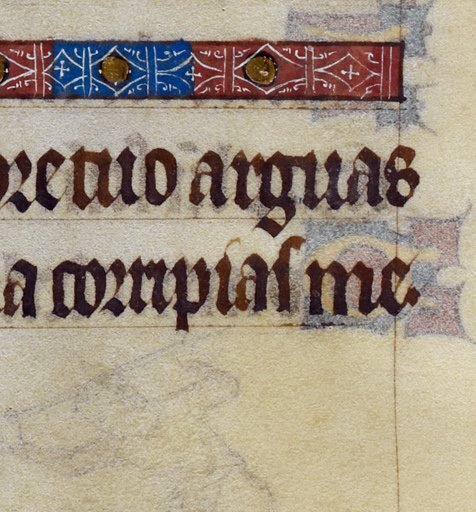 ore tuo arguas
a corripias me.